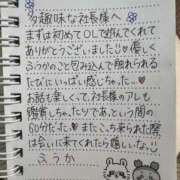 多趣味な社長様へ
まずは初めてOLで遊んでくれて
ありがとうございました♡優しく
ふうかのこと包み込んで触れられる
たびにいっぱい感じちゃった…♥
お話も楽しくって、社長様のアレも
興奮しちゃったりであっという間の
60分だった♥またこっち来られた際
は会いに来てくれたら嬉しいなっ!
ふうか